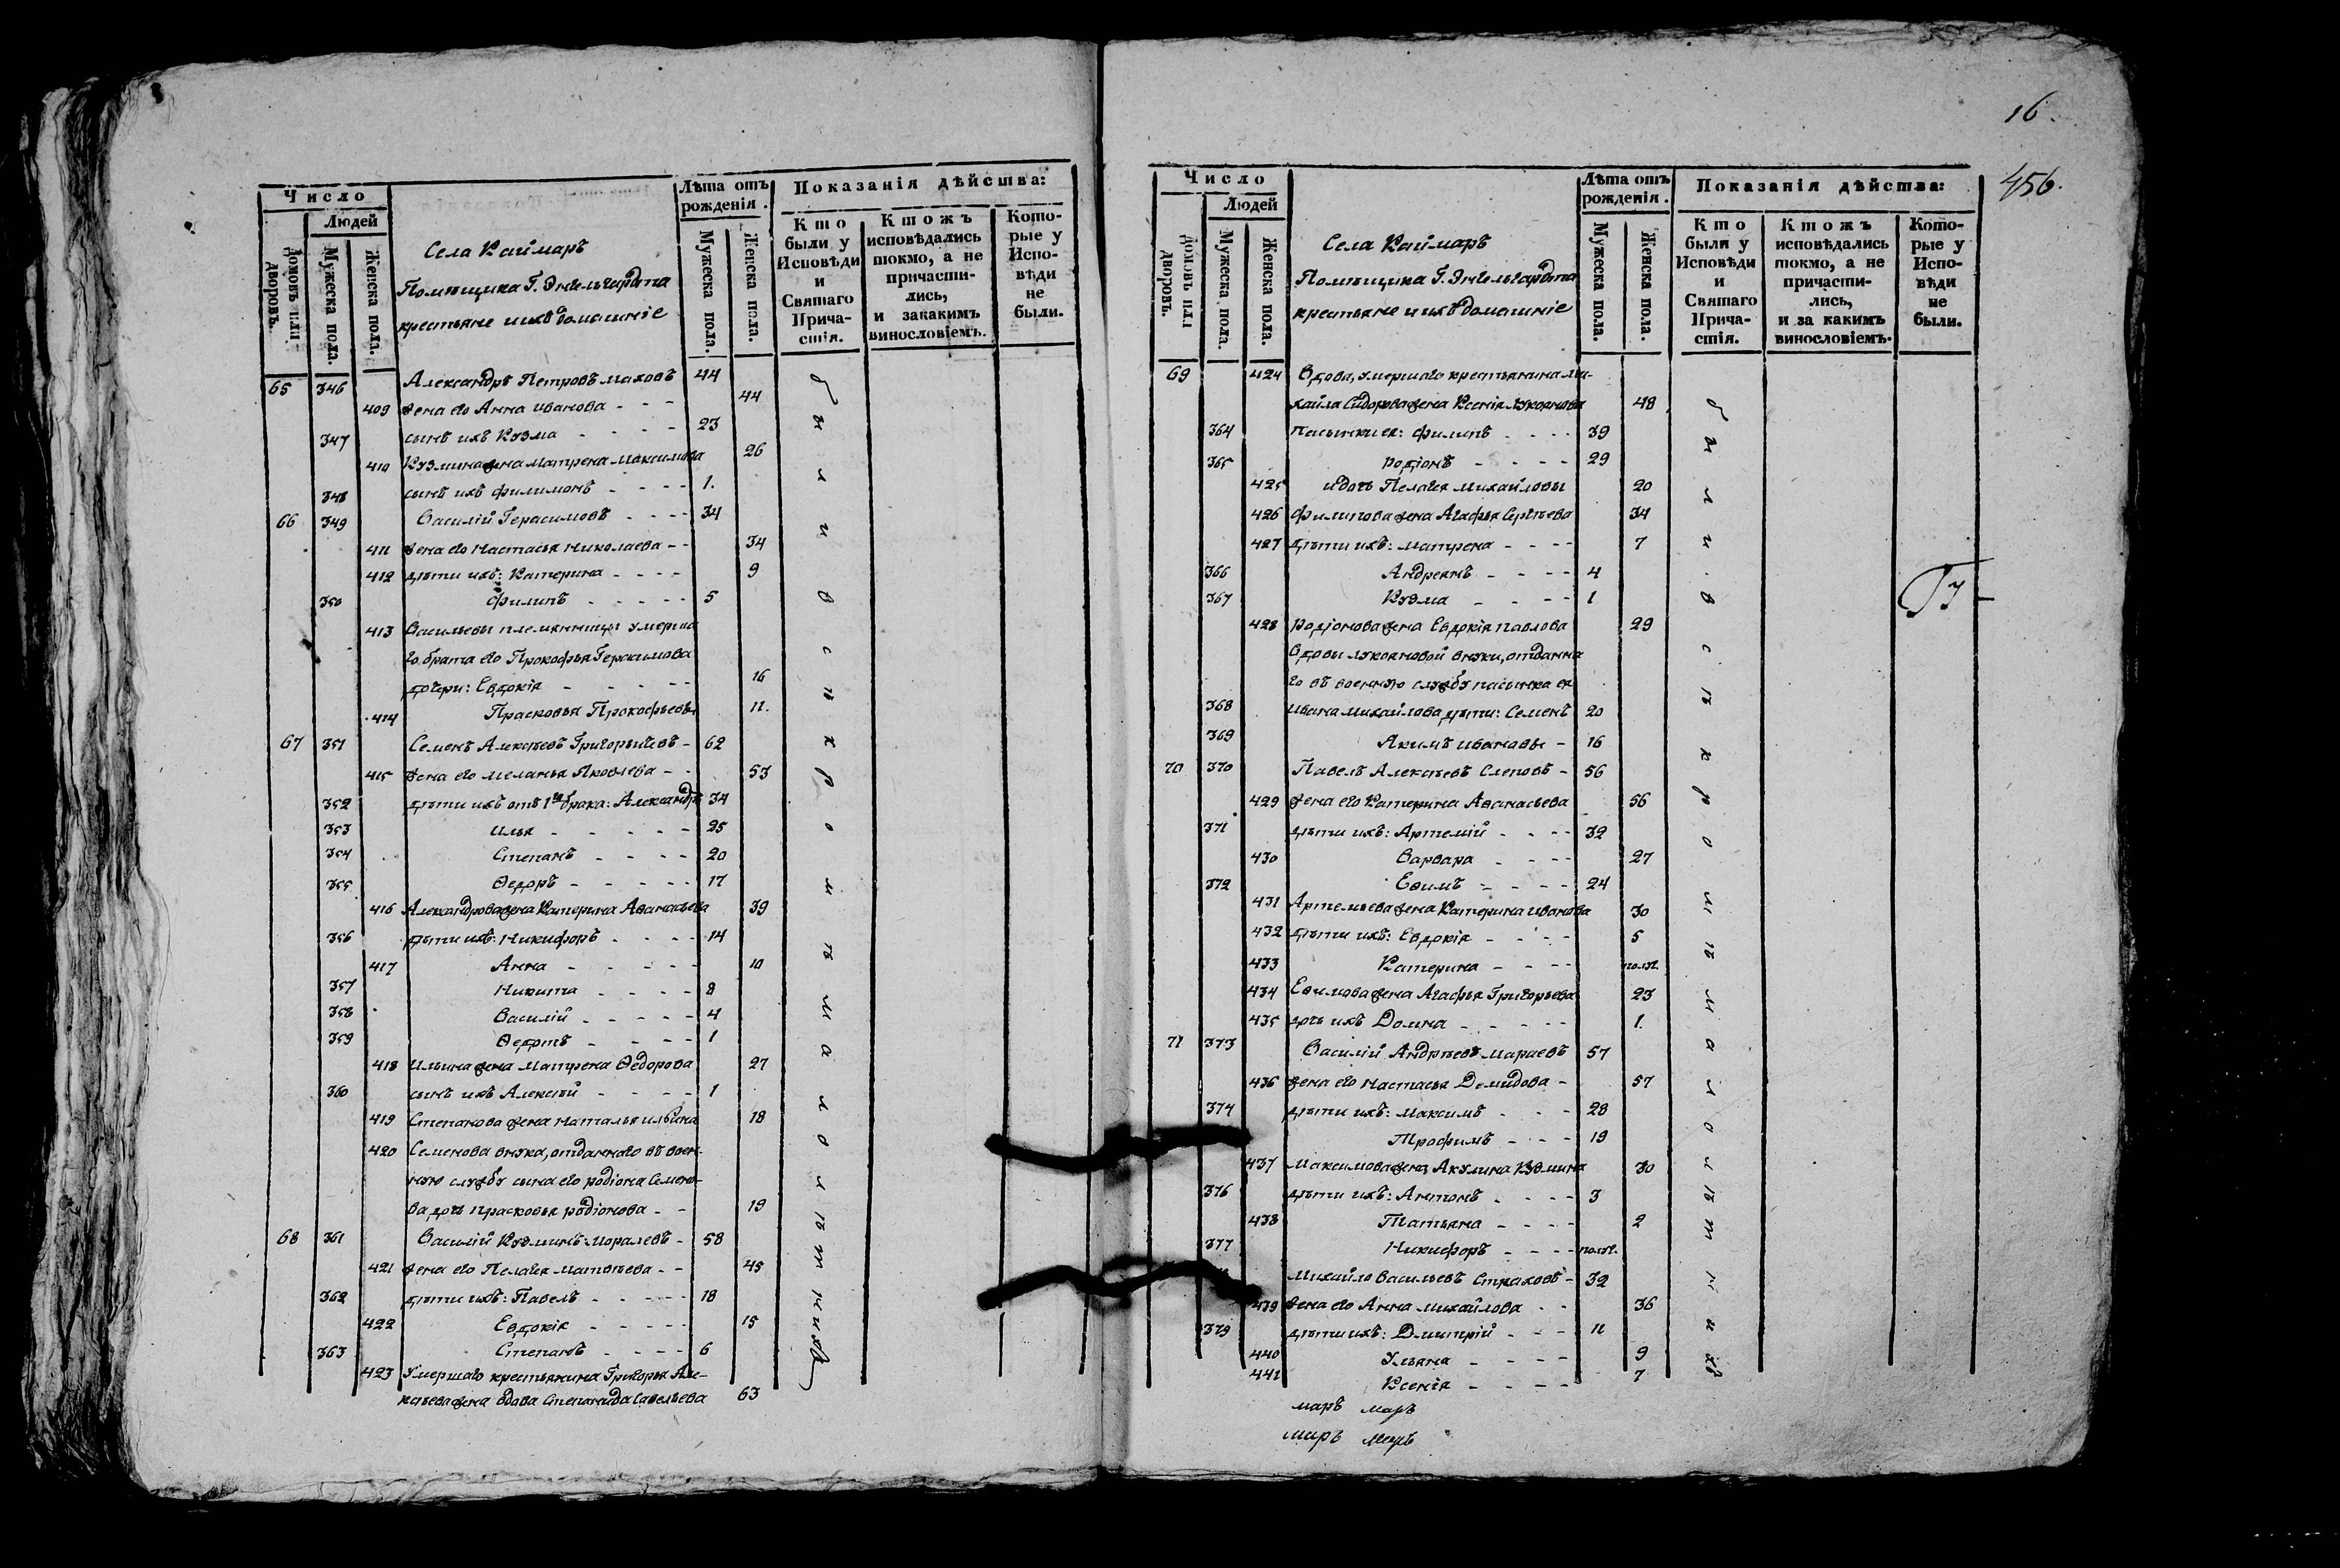 16.
456.
Число
Людей
домовъ или дворовъ.
Мужеска пола.
Женска пола.
Села Каймаръ
Помѣщика Г. Энгельгардта
крестьяне и ихъ домашніе
Лѣта отъ рожденія.
Мужеска пола.
Женска пола.
Показанія дѣйства:
Кто были у Исповѣди и Святаго Причастія.
Ктожъ исповѣдались токмо, а не причастились, и закакимъ винословіемъ.
Которые у Исповѣди не были.
65 346 Александръ Петровъ Маховъ 44
409 жена его Анна Иванова - - - 44
347 сынъ ихъ Кузма - - - - 23
410 Кузмина жена Матрена Максимова 26
348 сынъ ихъ Филимонъ - - - - 1.
66 349 Василій Герасимовъ - - - - 34
411 жена его Настасья Николаева - - 34
412 дѣти ихъ: Катерина - - - - 9
350 Филипъ - - - - - 5
413 Васильевы племянницы умерша
го брата его Прокофья Герасимова
дочери: Евдокія - - - - - 16
414 Прасковья Прокофьевы 11.
67 351 Семенъ Алексѣевъ Григорьичевъ - 62
415 жена его Меланья Яковлева - - 53
352 дѣти ихъ отъ 1го брака: Александръ 34
353 Илья - - - - - 25
354 Степанъ - - - - 20
355 Ѳедоръ - - - - - 17
416 Александрова жена Катерина Аѳанасьева 39
356 дѣти ихъ: Никифоръ - - - - 14
417 Анна - - - - - 10
357 Никита - - - - 8
358 Василій - - - - - 4
359 Ѳедотъ - - - - 1
418 Ильина жена Матрена Ѳедорова 27
360 сынъ ихъ Алексѣй - - - - 1
419 Степанова жена Наталья Ильина 18
420 Семенова внука, отданнаго въ воен-
ную службу сына его Родіона Семено-
ва дочь Прасковья Родіонова - - 19
68 361 Василій Кузминъ Моралевъ - 58
421 жена его Пелагея Матвѣева - - 45
362 дѣти ихъ: Павелъ - - - - - 18
422 Евдокія - - - - - 15
363 Степанъ - - - - 6
423 Умершаго крестьянина Григорья Але-
ксѣева жена вдова Степанида Савельева 63
были въ сѣхъ
Число
Людей
домовъ или дворовъ.
Мужеска пола.
Женска пола.
Села Каймаръ
Помѣщика Г. Энгельгардта
крестьяне и ихъ домашніе
Лѣта отъ рожденія.
Мужеска пола.
Женска пола.
Показанія дѣйства:
Кто были у Исповѣди и Святаго Причастія.
Ктожъ исповѣдались токмо, а не причастились, и за какимъ винословіемъ.
Которые у Исповѣди не были.
69 424 Вдова, умершаго крестьянина Ми-
хайла Сидорова жена Ксенія Лукоянова 48
364 пасынки ея: Филипъ - - - - 39
365 Родіонъ - - - - 29
425 и дочь Пелагея Михайловы 20
426 Филипова жена Агафья Сергѣева 34
427 дѣти ихъ: Матрена - - - - 7
366 Андреянъ - - - - 4
367 Кузма - - - - 1
428 Родіонова жена Евдокія Павлова 29
Вдовы Лукояновой внуки, отданна
го въ военную службу пасынка ея
368 Ивана Михайлова дѣти: Семенъ 20
369 Акимъ Ивановы - 16
70 370 Павелъ Алексѣевъ Слеповъ - 56
429 жена его Катерина Аѳанасьева 56
371 дѣти ихъ: Артемій - - - - 32
430 Варвара - - - - 27
372 Еѳимъ - - - - 24
431 Артемьева жена Катерина Иванова 30
432 дѣти ихъ: Евдокія - - - - 5
433 Катерина - - - - полг.
434 Еѳимова жена Агафья Григорьева 23
435 дочь ихъ Домна - - - - - 1.
71 373 Василій Андрѣевъ Мараевъ 57
436 жена его Настасья Демидова - 57
374 дѣти ихъ: Максимъ - - - 28
Трофимъ - - - 19
437 Максимова жена Акулина Кузмина 30
376 дѣти ихъ: Антонъ - - - - 3
438 Татьяна - - - - 2
377 Никифоръ - - - - полг.
Михайло Васильевъ Страховъ - 32
439 жена его Анна Михайлова - - 36
379 дѣти ихъ: Дмитрій - - - 11
440 Ульяна - - - - 9
441 Ксенія - - - - 7